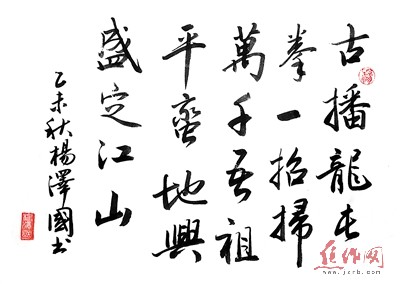 古播龍長
拳一招掃
萬千吾祖
平蠻地興
盛定江山
乙未秋楊澤國书
焦作网
www.jzrb.com